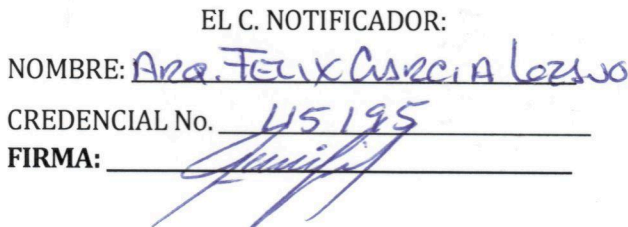 EL C. NOTIFICADOR:
NOMBRE: ARQ. FELIX GARCIA LOZANO
CREDENCIAL No. 45195
FIRMA: